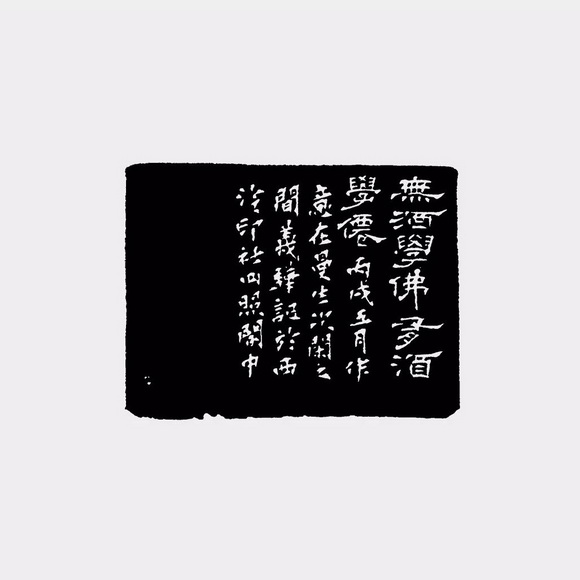 無酒學佛有酒
學僊 丙戌五月作
意在曼生次閑之
間義驊記於西
泠印社四照閣中